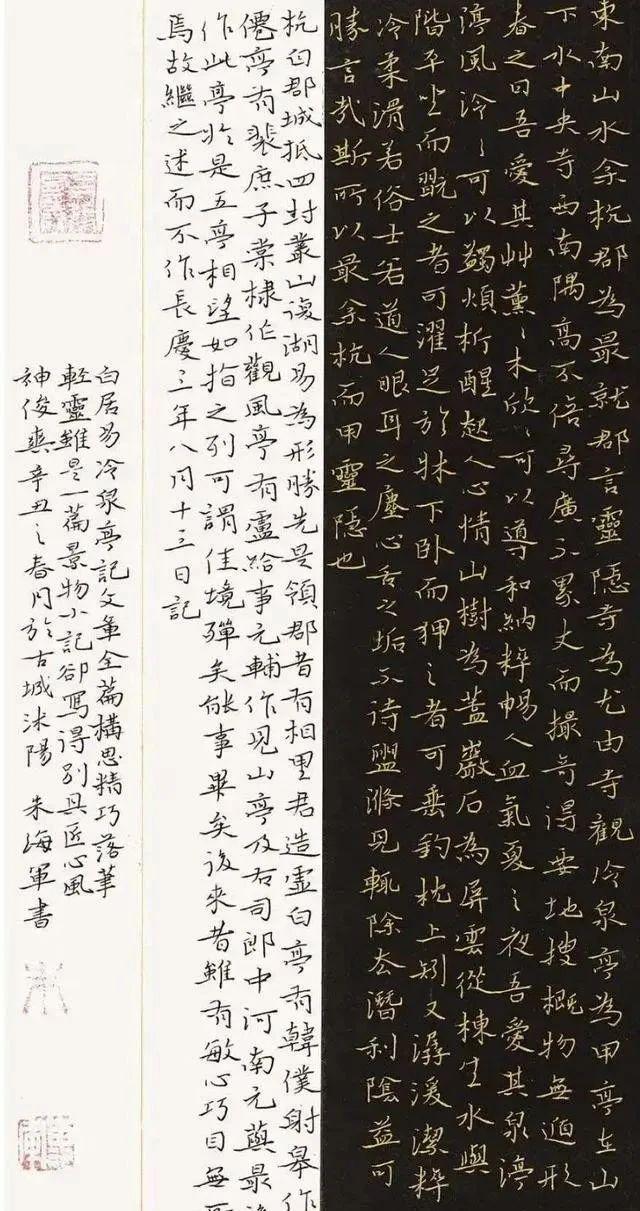 東南山水余杭郡為最就郡言靈隱寺為尤由寺觀冷泉亭為甲亭在山
下水中央寺西南隅高不倍尋廣不累丈而撮奇得要地搜概物無遁形
春之日吾愛其艸薰〻木欣〻可以導和納粹暢人血氣夏之夜吾愛其泉渟
渟風泠〻可以蠲煩析醒起人心情山樹為蓋巖石為屏雲從棟生水與
階平坐而翫之者可濯足於牀下卧而狎之者可垂釣枕上矧又潺湲潔粹
冷柔滑若俗士若道人眼耳之塵心舌之垢不待盥滌見輒除去潛利陰益可
勝言哉斯所以最余杭而甲靈隱也
杭自郡城抵四封叢山復湖易為形勝先是領郡者有相里君造虛白亭有韓僕射皋作
僊亭有裴庶子棠棣作觀風亭有盧給事元輔作見山亭及右司郎中河南元藇最後
作此亭於是五亭相望如指之列可謂佳境殫矣能事畢矣後來者雖有敏心巧目無所
焉故繼之述而不作長慶三年八月十三日記
白居易冷泉亭記文章全篇構思精巧落筆
輕靈雖是一篇景物小記卻寫得別具匠心風
神俊爽辛丑之春月於古城沭陽 朱海軍書